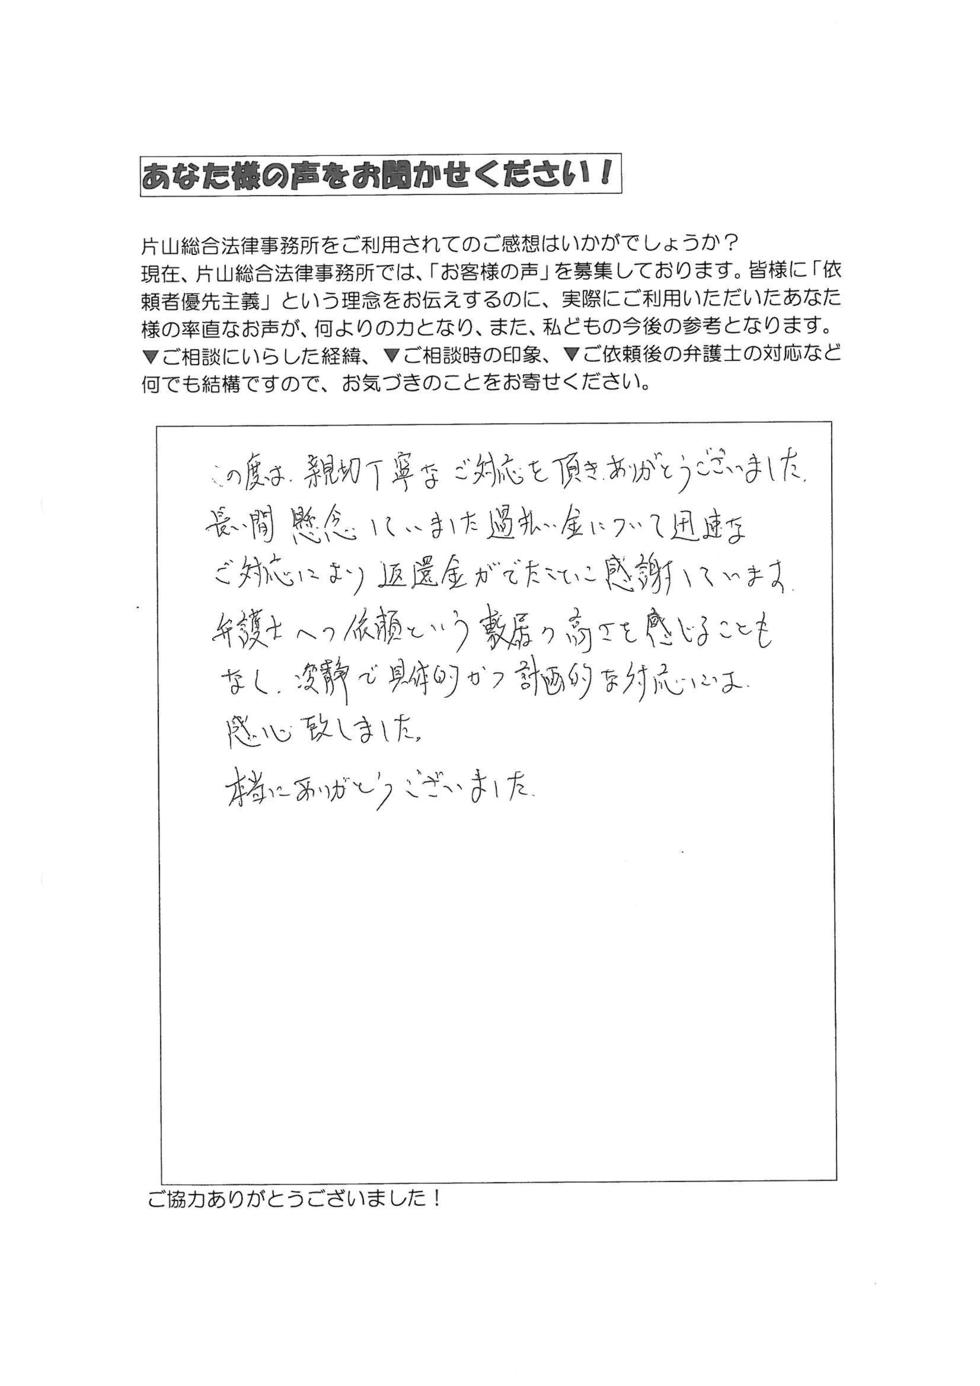 あなた様の声をお聞かせください！
片山総合法律事務所をご利用されてのご感想はいかがでしょうか？
現在、片山総合法律事務所では、「お客様の声」を募集しております。皆様に「依
頼者優先主義」という理念をお伝えするのに、実際にご利用いただいたあなた
様の率直なお声が、何よりの力となり、また、私どもの今後の参考となります。
▼ご相談にいらした経緯、▼ご相談時の印象、▼ご依頼後の弁護士の対応など
何でも結構ですので、お気づきのことをお寄せください。
この度は、親切丁寧なご対応を頂き、ありがとうございました。
長い間 懸念していました過払い金について迅速な
ご対応により返還金がでたことに感謝しています。
弁護士への依頼という敷居の高さを感じることも
なく、冷静で具体的かつ計画的な対応には、
感心致しました。
本当にありがとうございました。
ご協力ありがとうございました！